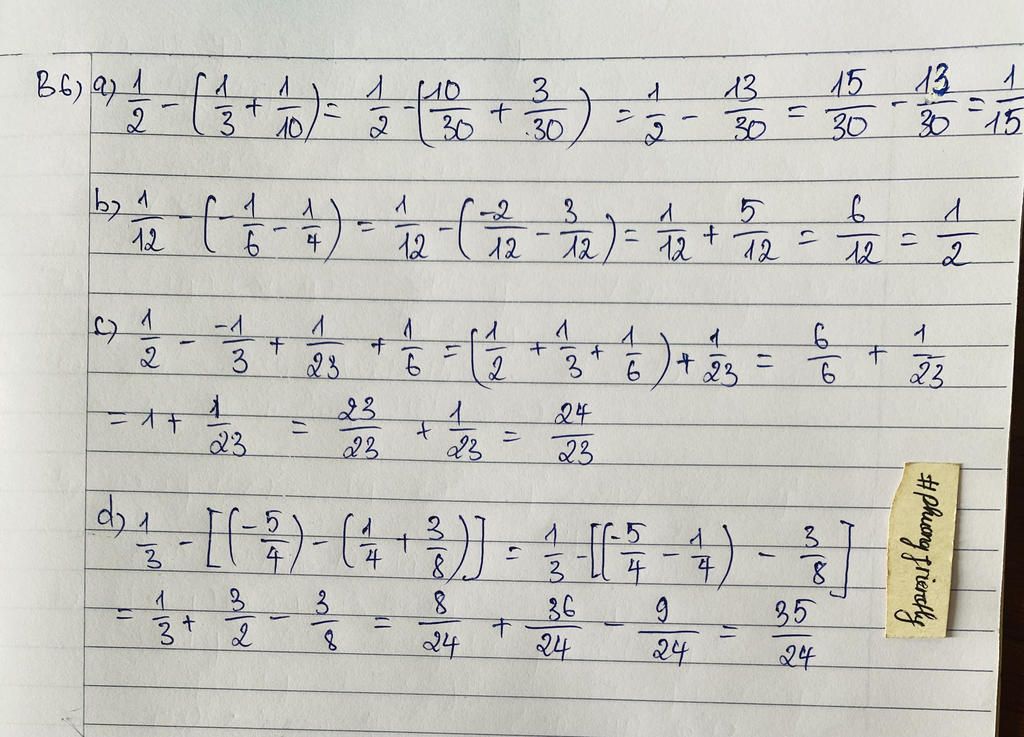 B6) a) 1/2 - (1/3 + 1/10) = 1/2 - (10/30 + 3/30) = 1/2 - 13/30 = 15/30 - 13/30 = 1/15
b) 1/12 - (-1/6 - 1/4) = 1/12 - (-2/12 - 3/12) = 1/12 + 5/12 = 6/12 = 1/2
c) 1/2 - -1/3 + 1/23 + 1/6 = (1/2 + 1/3 + 1/6) + 1/23 = 6/6 + 1/23
= 1 + 1/23 = 23/23 + 1/23 = 24/23
d) 1/3 - [(-5/4) - (1/4 + 3/8)] = 1/3 - [(-5/4 - 1/4) - 3/8]
= 1/3 + 3/2 - 3/8 = 8/24 + 36/24 - 9/24 = 35/24
#phuongfriendly